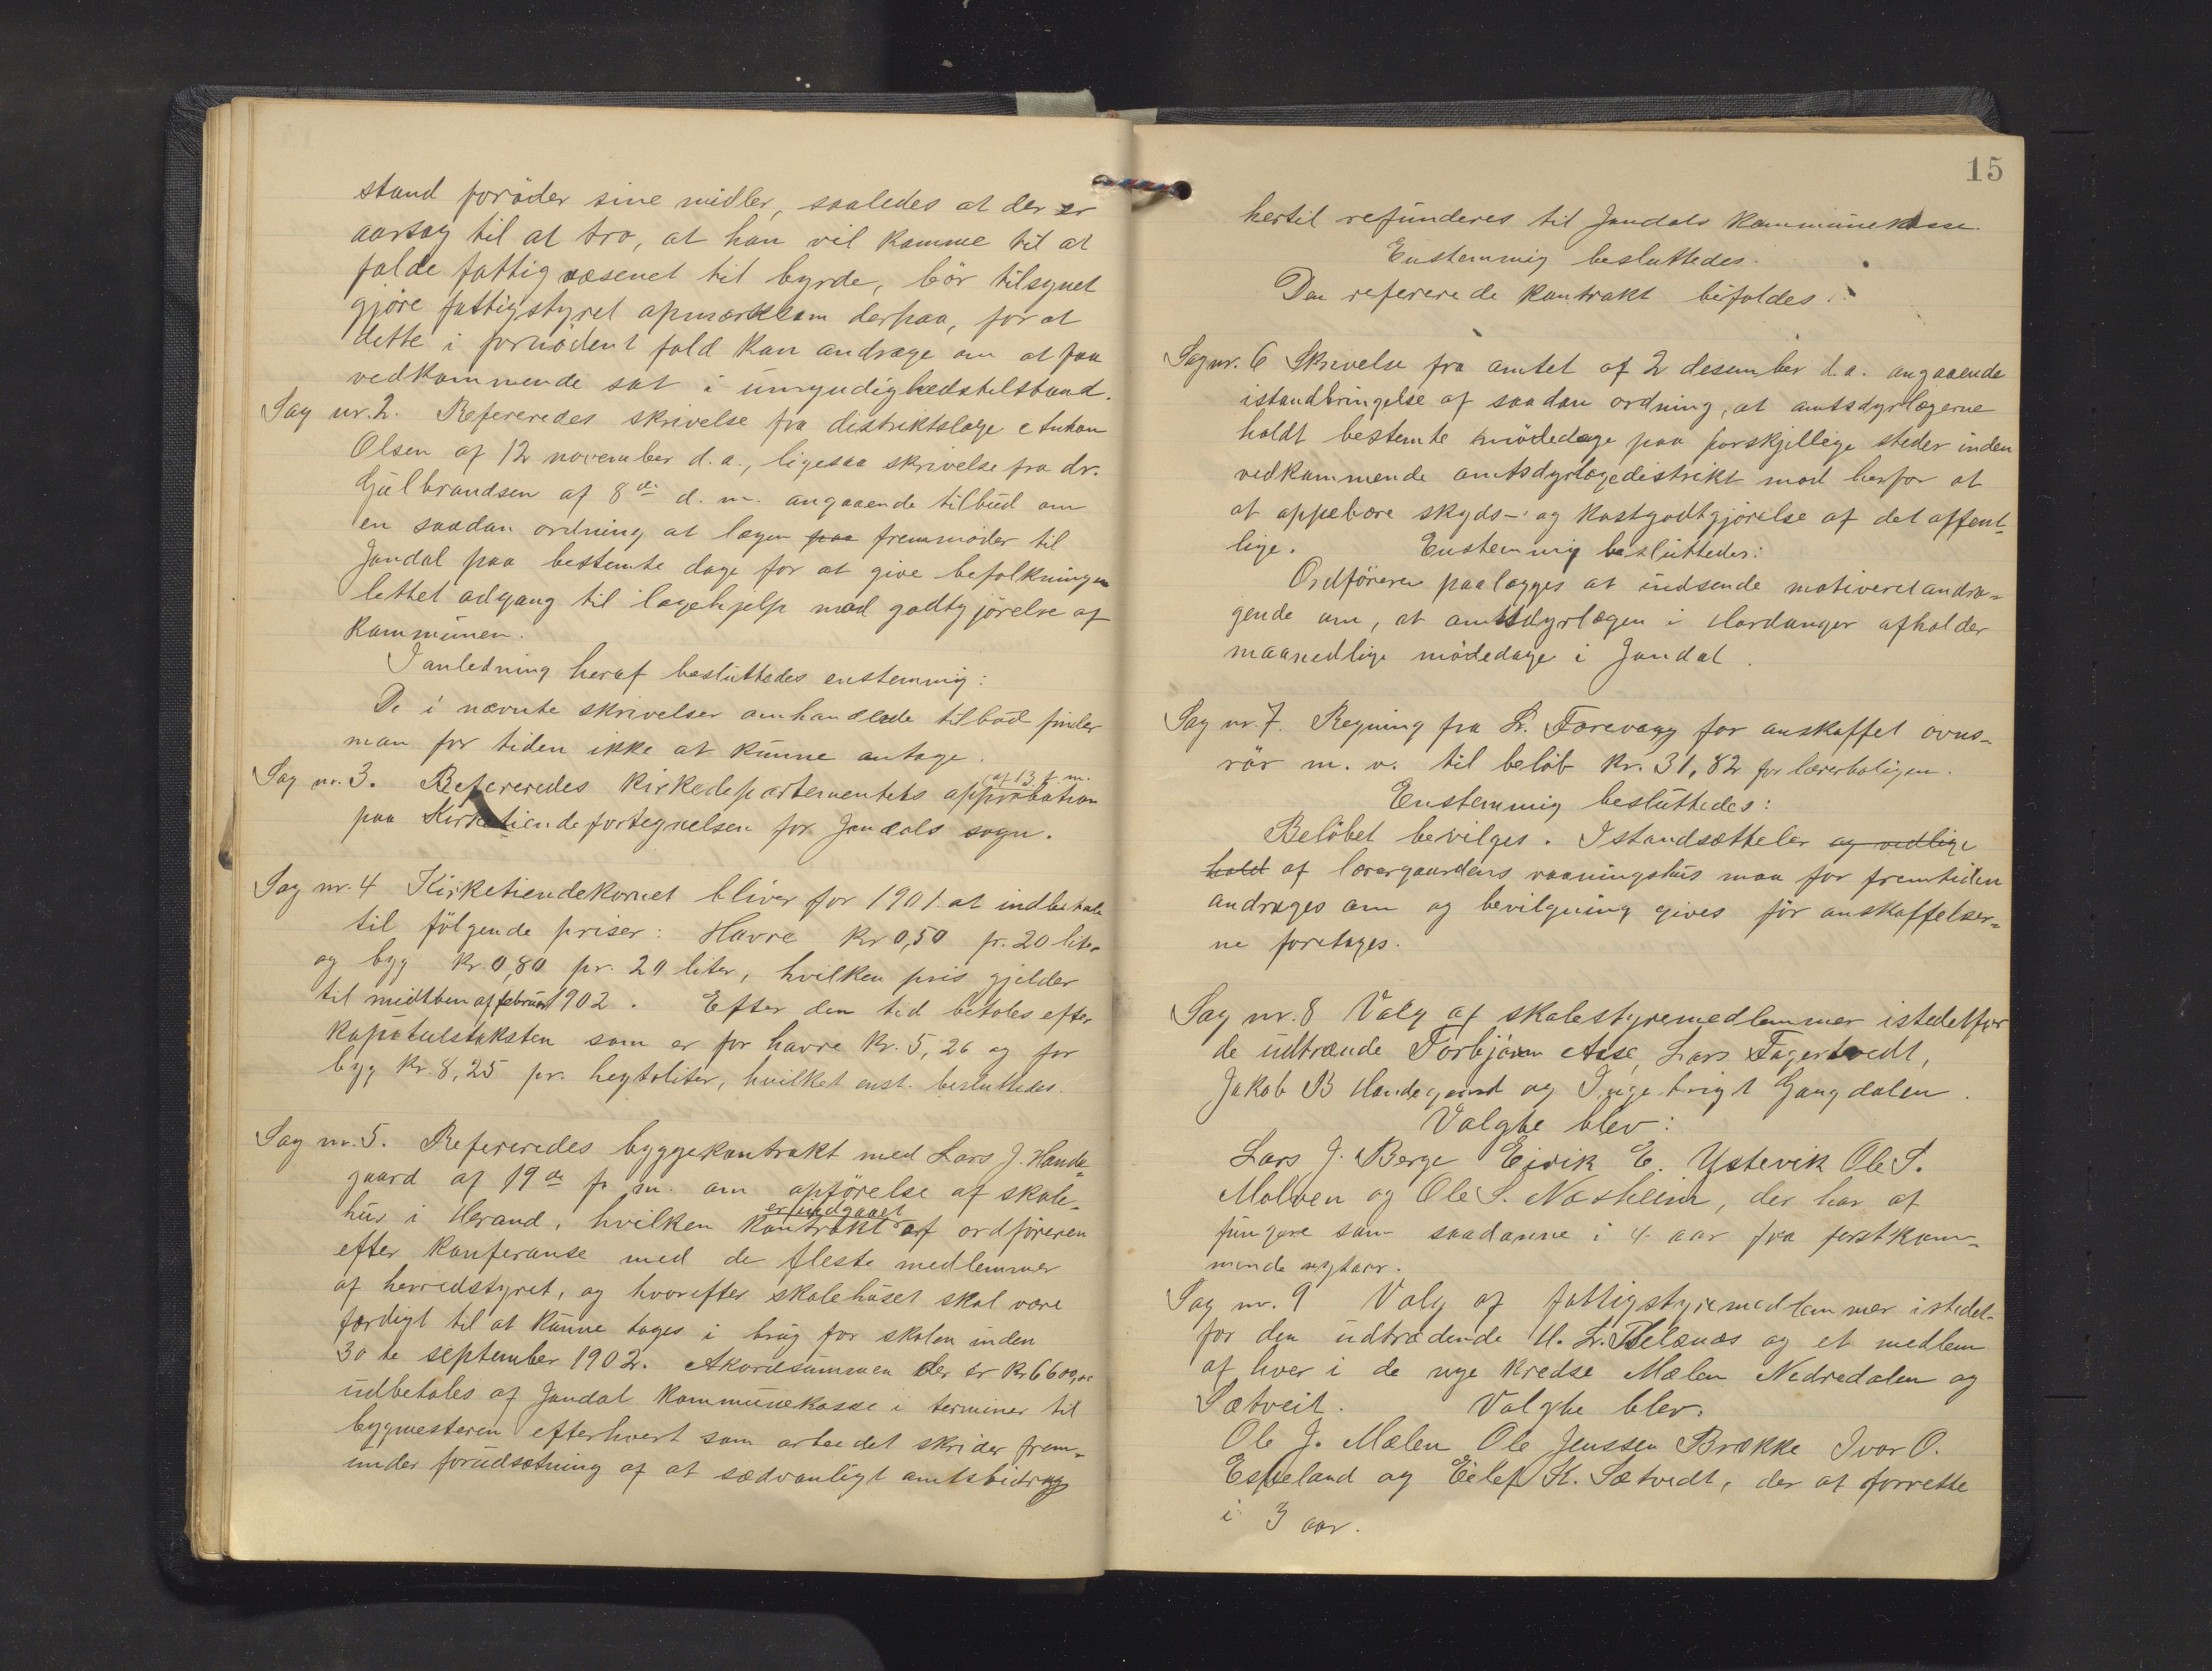 stand foröder sine midler, saaledes at der er
aarsag til at tro, at han vil komme til at
falde fattigvæsenet til byrde, bör tilsynet
gjöre fattigstyret opmærksom derpaa, for at
dette i fornödent fald kan andrage om at faa
vedkommende sat i umyndighedstilstand.
Sag nr. 2. Refereredes skrivelse fra distriktslæge Anton
Olsen af 12 november d.a., ligesaa skrivelse fra dr.
Gulbrandsen af 8de d. m. angaaende tilbud om
en saadan ordning at lægen paa fremmöder til
Jondal paa bestemte dage for at give befolkningen
lettet adgang til lægehjelp mod godtgjörelse af
kommunen.
I anledning heraf besluttedes enstemmig:
De i nævnte skrivelser omhandlede tilbud finder
man for tiden ikke at kunne antage.
Sag nr. 3. Refereredes kirkedepartementets approbation
(af 13 f. m.
paa Kirketiendefortegnelsen for Jondals sogn.
Sag nr. 4 Kirketiendekornet bliver for 1901 at indbetale
til fölgende priser: Havre Kr 0,50 pr. 20 liter
og byg Kr. 0,80 pr. 20 liter, hvilken pris gjelder
til midtten af februar 1902. Efter den tid betales efter
kapitulstaksten som er for havre Kr. 5,26 og for
byg Kr. 8,25 pr. hegtoliter, hvilket enst. besluttedes.
Sag nr. 5. Refereredes byggekontrakt med Lars J. Hande-
gaard af 19de f. m. om opförelse af skole-
hus i Herand, hvilken kontrakt af ordföreren
er indgaaet
efter konferanse med de fleste medlemmer
af herredstyret, og hvorefter skolehuset skal være
færdigt til at kunne tages i brug for skolen inden
30te september 1902. Akordsummen der er Kr 6600,00
udbetales af Jondal kommunekasse i terminer til
bygmesteren efterhvert som arbeidet skrider frem-
under forudsætning af at sædvanligt amtsbidrag
15
hertil refunderes til Jondals kommunekasse.
Enstemmig besluttedes.
Den refererede kontrakt bifaldes.
Sag nr. 6 Skrivelse fra amtet af 2 desember d.a. angaaende
istandbringelse af saadan ordning, at amtsdyrlægerne
holdt bestemte mödedage paa forskjellige steder inden
vedkommende amtsdyrlægedistrikt mod herfor at
at oppebære skyds- og kostgodtgjörelse af det offent-
lige. Enstemmig besluttedes:
Ordföreren paalægges at indsende motiveret andra-
gende om, at amtsdyrlægen i Hardanger afholder
maanedlige mödedage i Jondal.
Sag nr. 7. Regning fra L. Torevaag for anskaffet ovns-
rör m. v. til beløb Kr. 31,82 for lærerboligen.
Enstemmig besluttedes:
Belöbet bevilges. Istandsættelser og vedlige
hold af lærergaardens vaaningshus maa for fremtiden
andrages om og bevilgning gives för anskaffelser-
ne foretages.
Sag nr. 8 Valg af skolestyremedlemmer istedetfor
de udtrædende Torbjörn Aase, Lars Fagertvedt,
Jakob B Handegaard og Ingebrigt Gangdalen.
Valgte blev:
Lars J. Berge Eirik E. Ystevik Ole S.
Molven og Ole S. Næsheim, der har at
fungere som saadanne i 4 aar fra förstkom-
mende nytaar.
Sag nr. 9 Valg af fattigstyremedlemmer istedet-
for den udtrædende H. L. Thelænæs og et medlem
af hver i de nye kredse Mælen Nedredalen og
Sætveit. Valgte blev:
Ole J. Mælen Ole Jenssen Brække Ivar O.
Espeland og Eilef K. Sætvedt, der at forrette
i 3 aar.